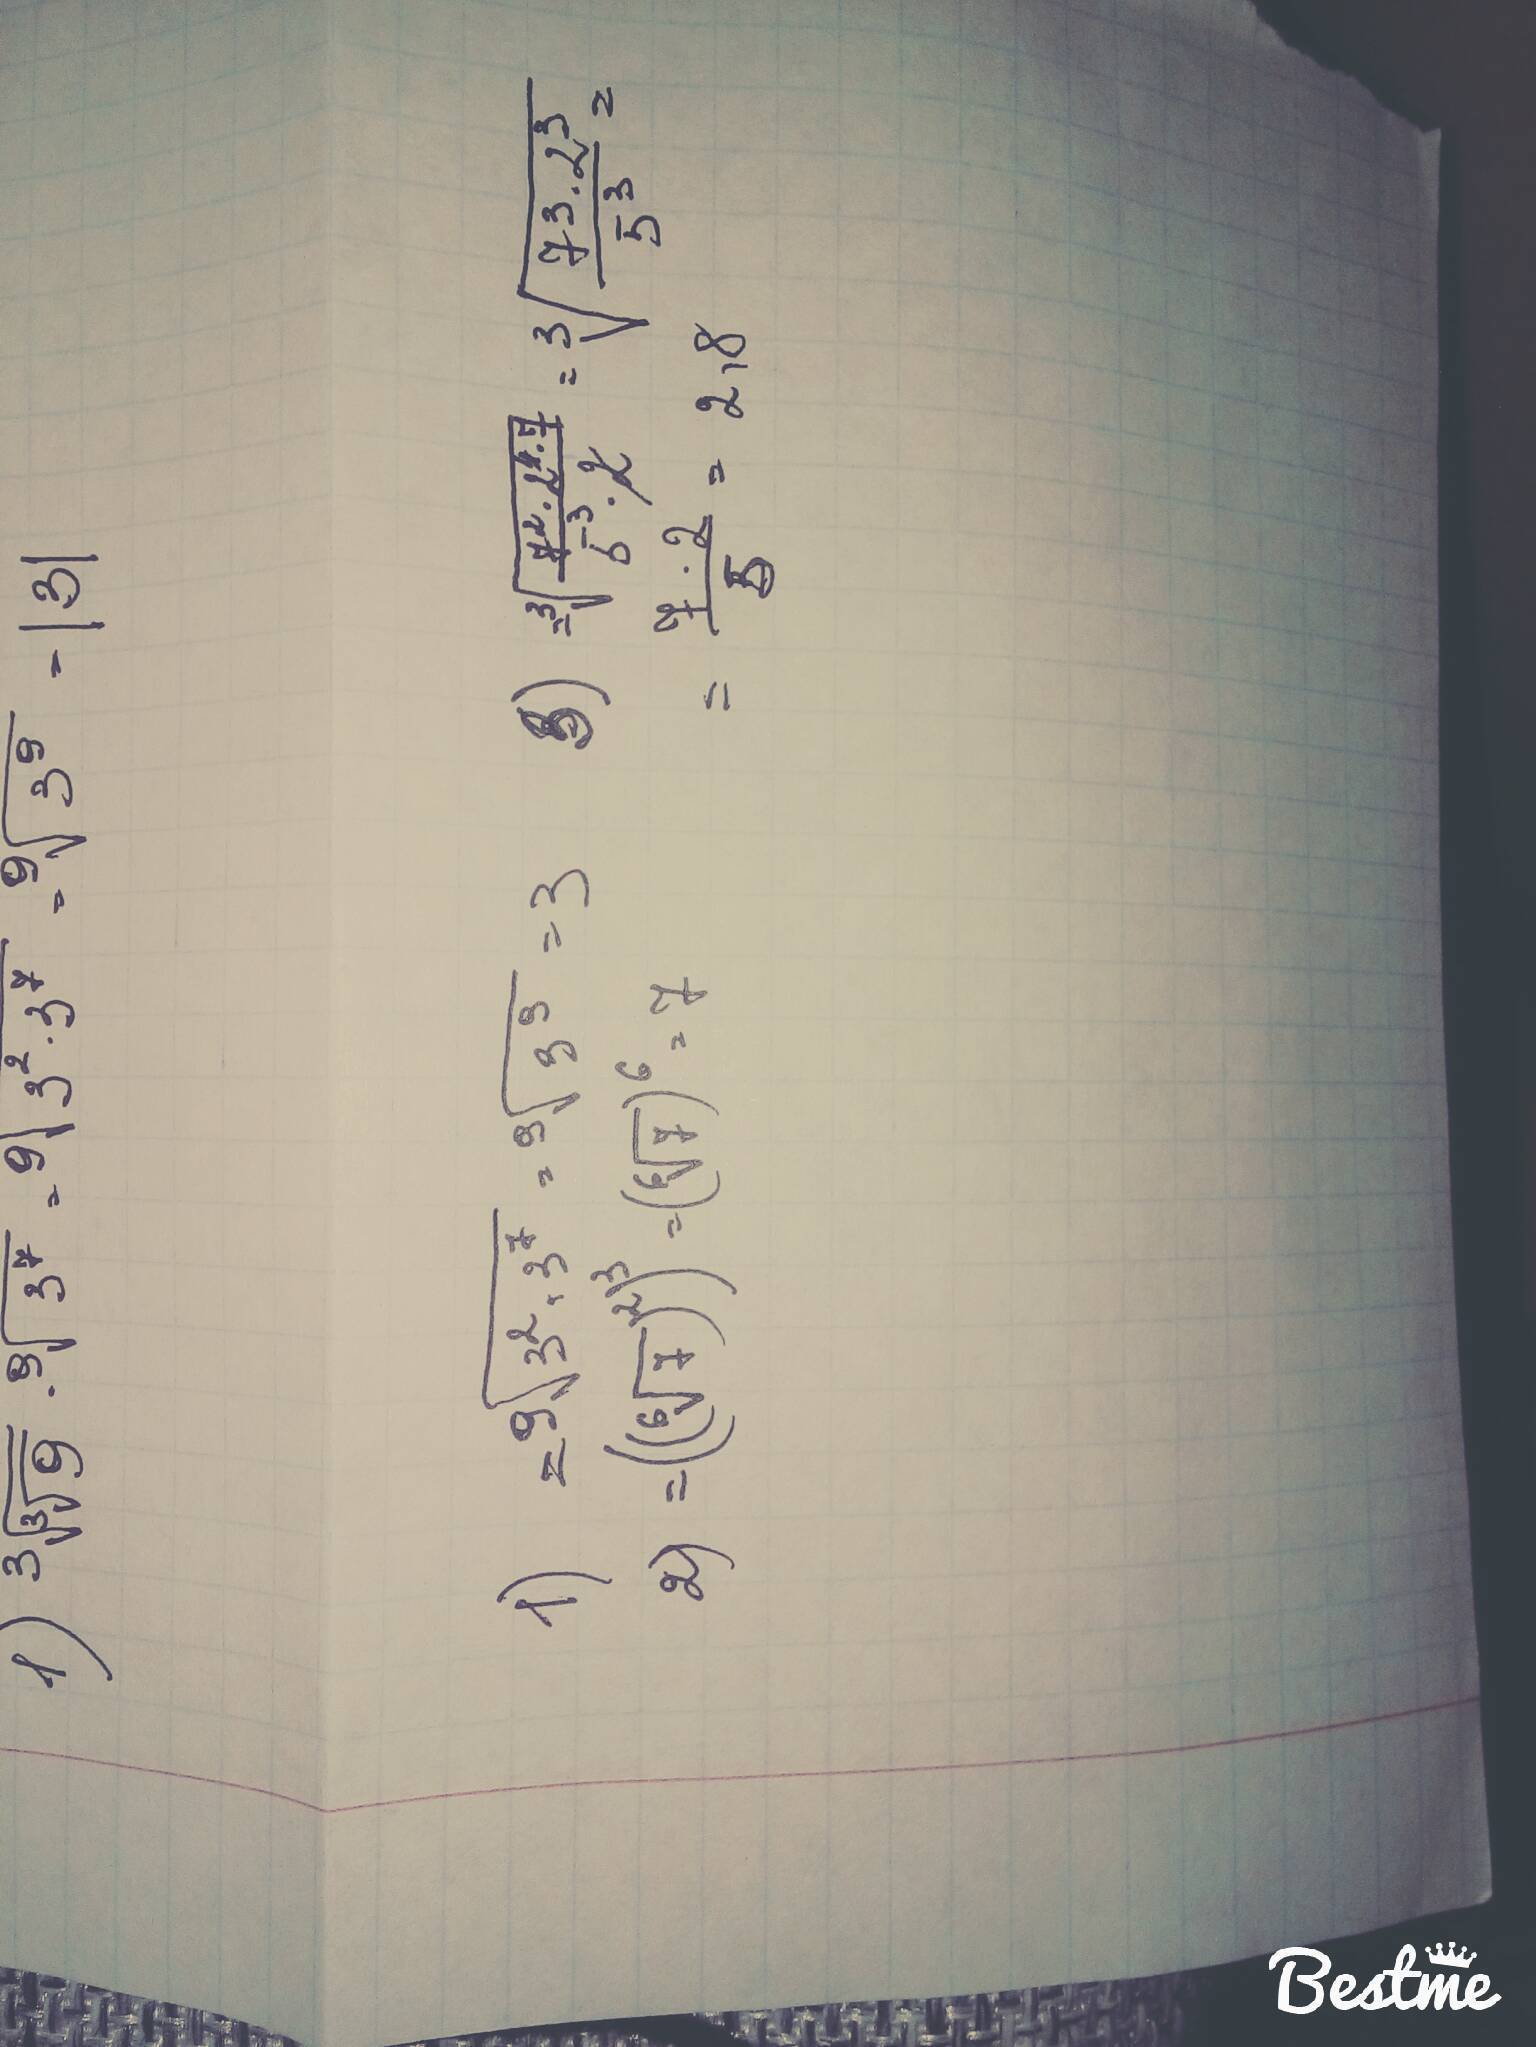 1) ∛∛9 · ⁹√3⁷ = ⁹√3² · 3⁷ = ⁹√3⁹ = |3|
1) = ⁹√3² · 3⁷ = ⁹√3⁹ = 3
2) = ((⁶√7)²)³ = (⁶√7)⁶ = 7
3) = ³√7² · 2⁴ · 7 / 5³ · 2 = ³√7³ · 2³ / 5³ =
= 7 · 2 / 5 = 2,8
Bestme